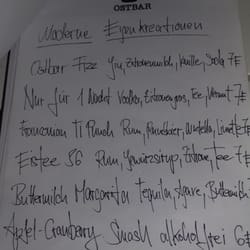 OSTBAR
Moderne Eigenkreationen
Ostbar Fizz Gin, Zitronenmilch, Vanille, Soda 7€
Nur für 1 Nacht Vodka, Zitronengras, Tee, 7€
Franconian Ti Punch Rum, Limette 7€
Eistee 56 Rum, Gewürzsirup, Zitrone, Tee 7€
Buttermilch Margarita Tequila, Agave, Buttermilch 7€
Apfel-Cranberry Smash alkoholfrei 6€